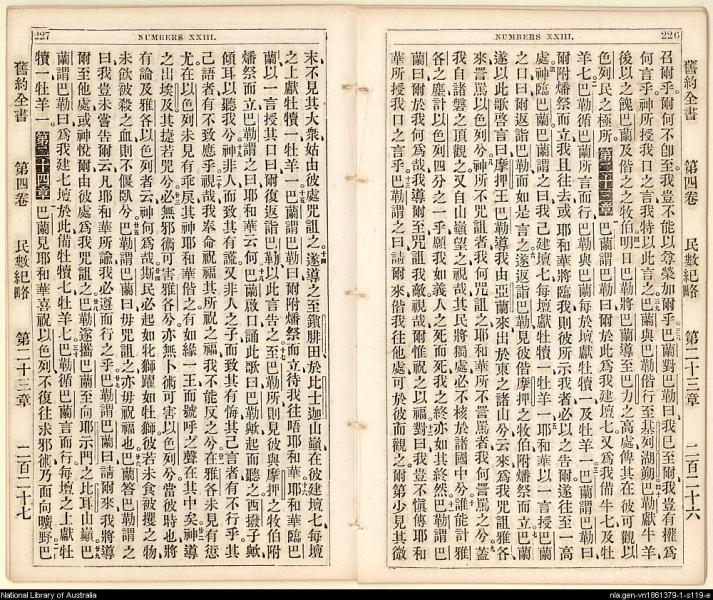 NUMBERS XXIII. 226
舊約全書 第四卷 民數紀略 第二十三章 二百二十六
召爾乎爾何不卽至我豈不能以尊榮加爾乎巴蘭對巴勒曰我已至爾我豈有權爲
何言乎神所授我口之言我特以此言之巴蘭與巴勒偕行至基列湖鎖巴勒獻牛羊
後以之餽巴蘭及偕之之牧伯明日巴勒將巴蘭導至巴力之高處俾其在彼可觀以
色列民之極所第二十三章巴蘭謂巴勒曰爾於此爲我建壇七又爲我備牛七及牡
羊七巴勒循巴蘭所言而行巴勒與巴蘭每於壇獻牡犢一及牡羊一巴蘭謂巴勒曰
爾附燔祭而立我且往去或耶和華將臨我則彼所示我者必以之告爾遂往至一高
處神臨巴蘭巴蘭謂之曰我已建壇七每壇獻牡犢一牡羊一耶和華以一言授巴蘭
之口曰爾返詣巴勒而如是言之遂返詣巴勒見彼偕摩押之牧伯附燔祭而立巴蘭
遂以此歌啓言曰摩押王巴勒導我由亞蘭來出於東之諸山兮云來爲我咒詛雅各
來詈罵以色列兮神所不咒詛者我何咒詛之耶和華所不詈罵者我何詈罵之兮蓋
我自諸磐之頂觀之又自山嶺望之視哉其民將獨處必不核於諸國中兮誰能計雅
各之塵計以色列四分之一乎願我如義人之死而死我之終亦如其終然巴勒謂巴
蘭曰爾於我何爲哉我導爾至咒詛我敵視哉爾惟祝之以福對曰我豈不愼傳耶和
華所授我口之言乎巴勒謂之曰請爾來偕我往他處可於彼而觀之爾第少見其微
227 NUMBERS XXIII.
末不見其大衆姑由彼處咒詛之遂導之至鎖腓田於比士迦山巔在彼建壇七每壇
之上獻牡犢一牡羊一巴蘭謂巴勒曰爾附燔祭而立待我往晤耶和華耶和華臨巴
蘭以一言授其口曰爾復返詣巴勒以此言告之至巴勒所則見彼與摩押之牧伯附
燔祭而立巴勒謂之曰耶和華云何巴蘭啟口誦此歌曰巴勒歟起而聽之西撥子歟
傾耳以聽我兮神非人而致其有謊又非人之子而致其有悔其已言者有不行乎其
己語者有不致應乎視哉我奉命祝福其所祝之福我不能反之兮在雅各未見有愆
尤在以色列未見有乖戾其神耶和華偕之有如緣一王而號呼之聲在其中矣神導
之出埃及其捷若兕兮必無邪術可害雅各兮亦無卜術可害以色列兮當彼時也將
有論及雅各以色列者云神何爲哉斯民必起如牝獅躍如牡獅彼若未食被攫之物
未飲被殺之血則不偃臥兮巴勒謂巴蘭曰毋咒詛之亦毋祝福也巴蘭答巴勒謂之
曰我豈未嘗告爾云凡耶和華所諭我必遵而行之乎巴勒謂巴蘭曰請爾來我將導
爾至他處或神悅爾由彼處爲我咒詛之巴勒遂攜巴蘭至向耶示門之比耳山巔巴
蘭謂巴勒曰爲我建七壇於此備牡犢七牡羊七巴勒循巴蘭言而行每壇之上獻牡
犢一牡羊一第二十四章巴蘭見耶和華喜祝以色列不復往求邪術乃面向曠野巴
舊約全書 第四卷 民數紀略 第二十三章 二百二十七
National Library of Australia
nla.gen-vn1861379-1-s119-e